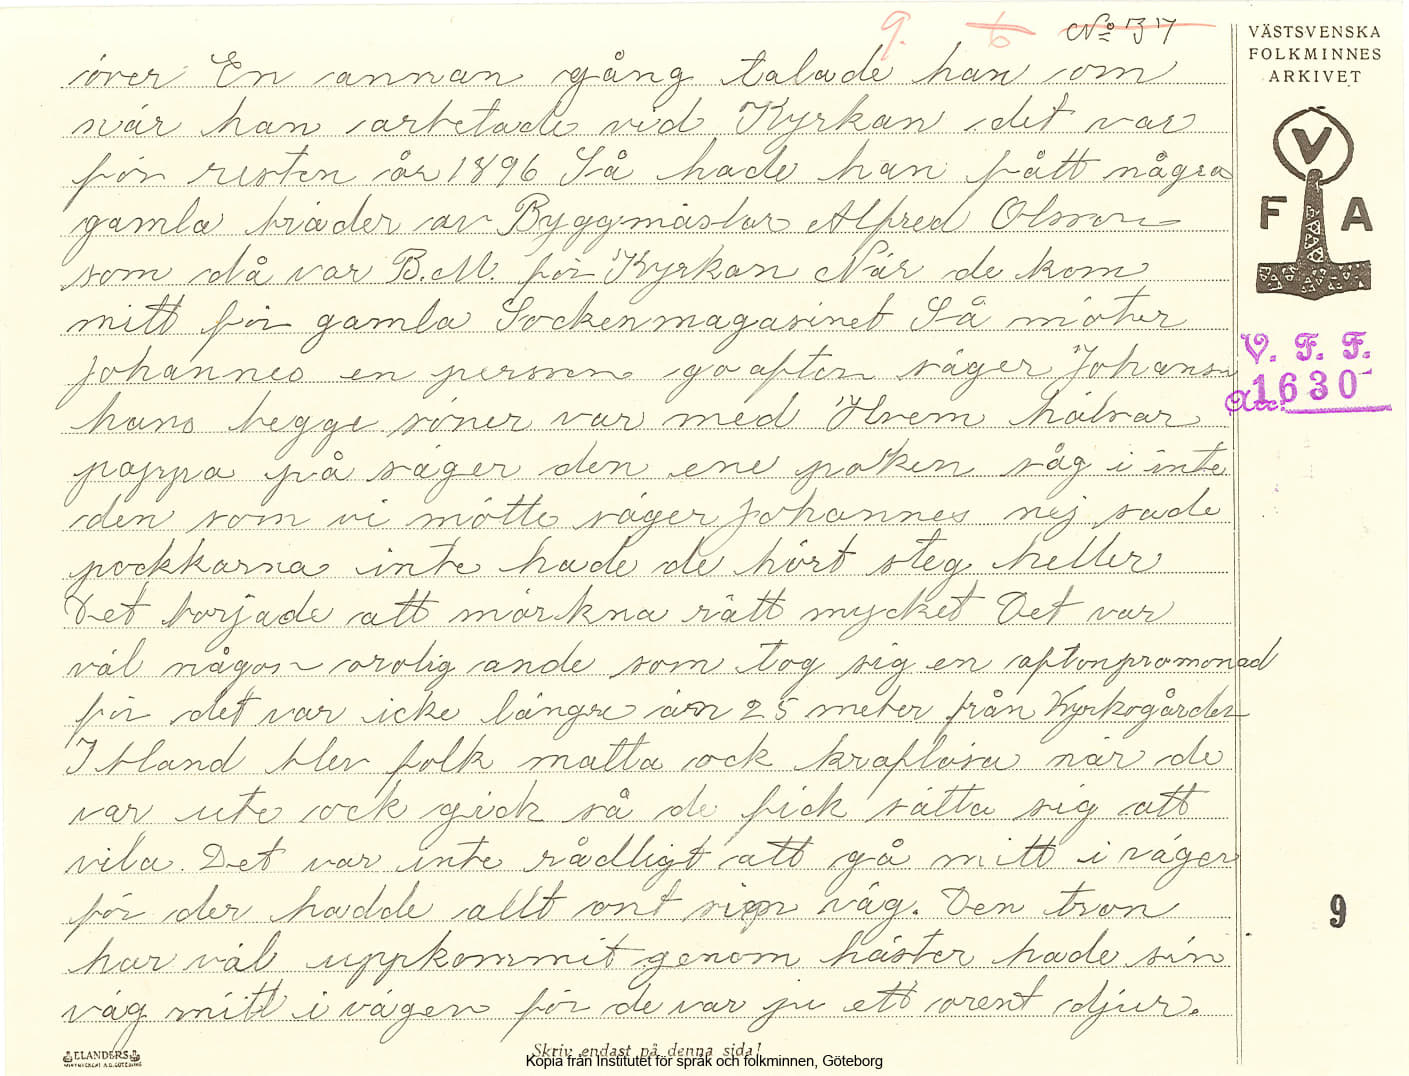 9. 6 No 37
över En annan gång talade han om
när han arbetade vid Kyrkan det var
för resten år 1896 Så hade han fått några
gamla bräder av Byggmästar Alfred Olsson
som då var B.M. för Kyrkan När de kom
mitt för gamla Sockenmagasinet Så möter
Johannes en person go afton säger Johanes
hans begge söner var med Hvem hälsar
pappa på säger den ene poken såg i inte
den som vi mötte säger Johannes nej sade
pockkarna inte hade de hört steg heller
Det började att mörkna rätt mycket Det var
väl någon orolig ande som tog sig en aftonpromonad
för det var icke längre än 25 meter från Kyrkogården
Ibland blev folk matta ock kraflösa när de
var ute ock gick så de fick sätta sig att
vila. Det var inte rådligt att gå mitt i vägen
för der hadde allt ont sign väg. Den tron
har väl uppkommit genom häster hade sin
väg mitt i vägen för de var ju ett orent djur.
VÄSTSVENSKA
FOLKMINNES
ARKIVET
V
F A
V. F. F.
Acc: 1630
9
ELANDERS
Skriv endast på denna sida!
Kopia från Institutet för språk och folkminnen, Göteborg